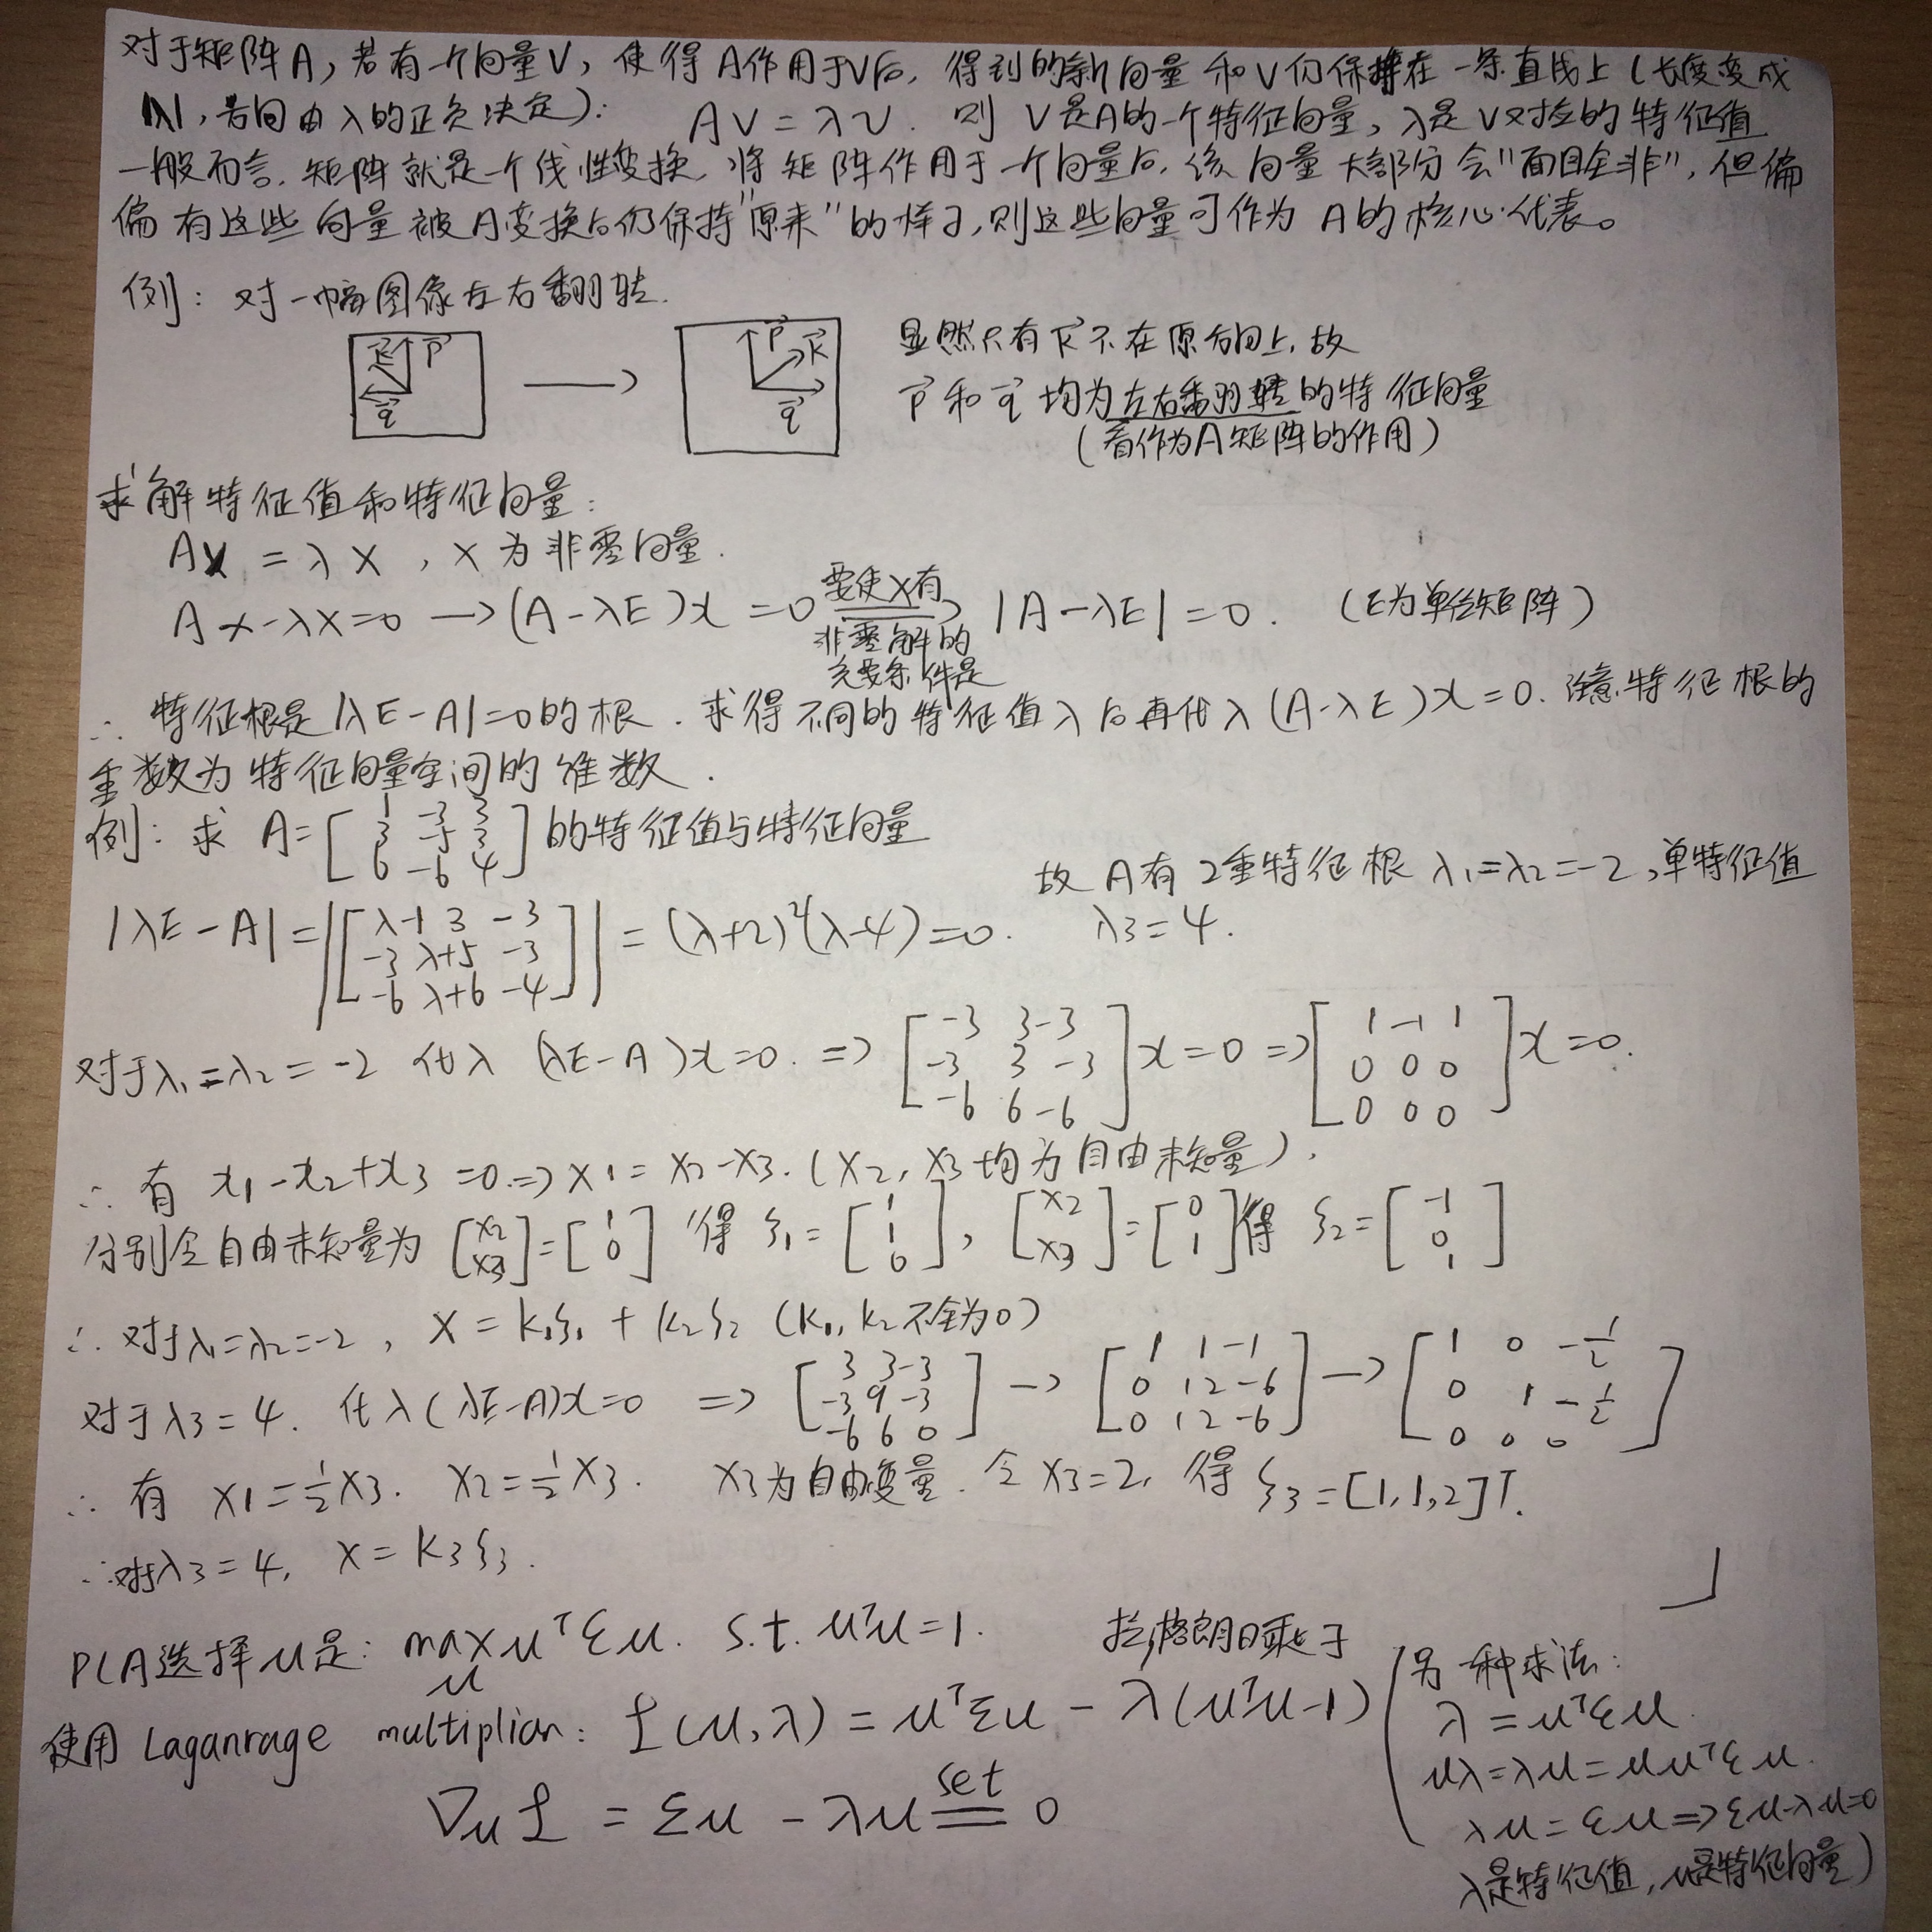 对于矩阵A,若有一个向量V,使得A作用于V后,得到的新向量和V仍保持在一条直线上(长度变成
|λ|,方向由λ的正负决定): AV=λV. 则V是A的一个特征向量,λ是V对应的特征值
一般而言,矩阵就是个线性变换,将矩阵作用于一个向量后,该向量大部分会"面目全非",但偏
偏有这些向量被A变换后仍保持"原来"的样子,则这些向量可作为A的核心代表。
例:对一幅图像左右翻转.
k⃗ p⃗ q⃗ → p⃗ k⃗ q⃗
显然只有k⃗不在原方向上,故
p⃗和q⃗均为左右翻转的特征向量
(看作为A矩阵的作用)
求解特征值和特征向量:
Ax=λx,x为非零向量.
Ax-λx=0→(A-λE)x=0 要使x有非零解的充要条件是 |A-λE|=0. (E为单位矩阵)
∴特征根是|λE-A|=0的根.求得不同的特征值λ后再代入(A-λE)x=0.注意特征根的
重数为特征向量空间的维数.
例:求A=[1 -3 3; 3 -5 3; 6 -6 4]的特征值与特征向量
|λE-A|=|[λ-1 3 -3; -3 λ+5 -3; -6 λ+6 -4]|=(λ+2)²(λ-4)=0. 故A有2重特征根λ1=λ2=-2,单特征值
λ3=4.
对于λ1=λ2=-2 代入(λE-A)x=0.⇒[-3 3 -3; -3 3 -3; -6 6 -6]x=0⇒[1 -1 1; 0 0 0; 0 0 0]x=0.
∴有x1-x2+x3=0.⇒x1=x2-x3.(x2,x3均为自由未知量),
分别令自由未知量为[x2; x3]=[1; 0]得ξ1=[1; 1; 0],[x2; x3]=[0; 1]得ξ2=[-1; 0; 1]
∴对于λ1=λ2=-2,x=k1ξ1+k2ξ2(k1,k2不全为0)
对于λ3=4.代入(λE-A)x=0⇒[3 3 -3; -3 9 -3; -6 6 0]→[1 1 -1; 0 12 -6; 0 12 -6]→[1 0 -1/2; 0 1 -1/2; 0 0 0]
∴有x1=½x3. x2=½x3. x3为自由变量.令x3=2,得ξ3=[1,1,2]T.
∴对于λ3=4,x=k3ξ3.
PCA选择u是:max u uᵀΣu. s.t. uᵀu=1. 拉格朗日乘子
使用Laganrage multiplian: £(u,λ)=uᵀΣu-λ(uᵀu-1)
∇u£=Σu-λu set= 0
(另一种求法:
λ=uᵀΣu
uλ=λu=uuᵀΣu.
λu=Σu⇒Σu-λu=0
λ是特征值,u是特征向量)